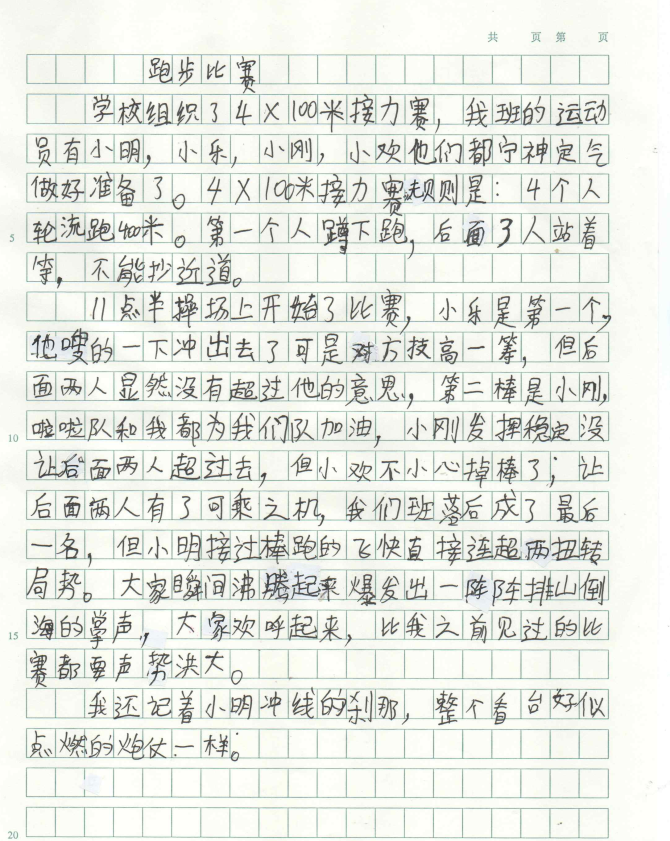 共 页 第 页
跑步比赛
学校组织了4×100米接力赛，我班的运动
员有小明，小乐，小刚，小欢他们都宁神定气
做好准备了。4×100米接力赛规则是：4个人
轮流跑400米。第一个人蹲下跑，后面3人站着
5
等，不能抄近道。
11点半操场上开始了比赛，小乐是第一个，
他嗖的一下冲出去了可是对方技高一筹，但后
面两人显然没有超过他的意思，第二棒是小刚，
啦啦队和我都为我们队加油，小刚发挥稳定没
10
让后面两人超过去，但小欢不小心掉棒了；让
后面两人有了可乘之机，我们班落后成了最后
一名，但小明接过棒跑的飞快直接连超两扭转
局势。大家瞬间沸腾起来爆发出一阵阵排山倒
海的掌声，大家欢呼起来，比我之前见过的比
15
赛都要声势洪大。
我还记着小明冲线的刹那，整个看台好似
点燃的炮仗一样。
20